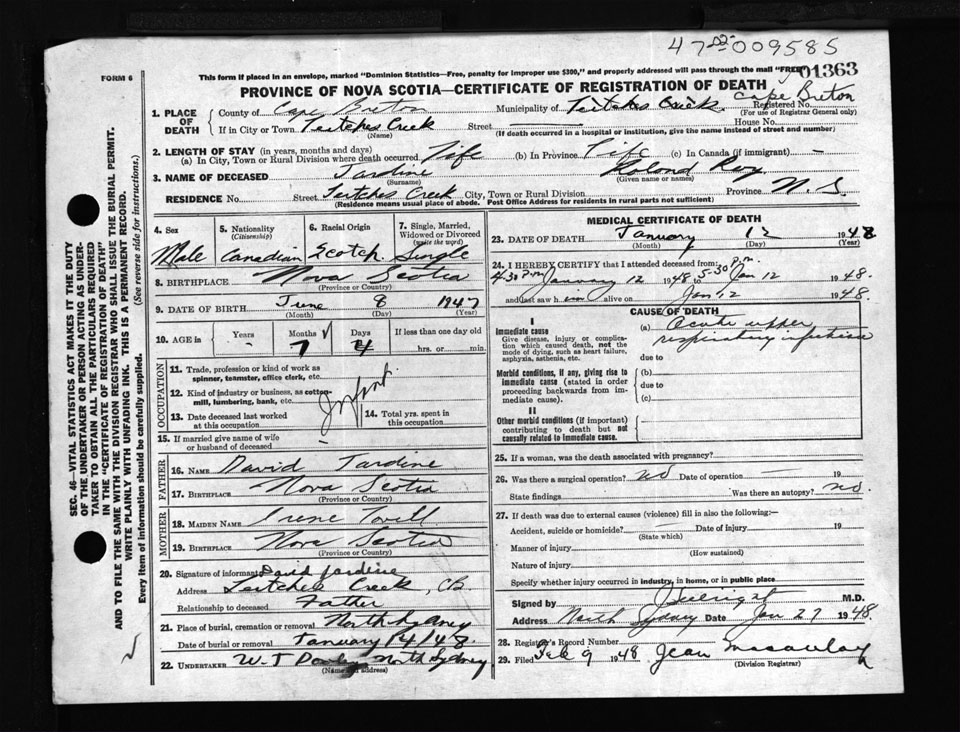 47 009585
FORM 6
This form if placed in an envelope, marked "Dominion Statistics—Free, penalty for improper use $300," and properly addressed will pass through the mail "FREE"
01363
PROVINCE OF NOVA SCOTIA—CERTIFICATE OF REGISTRATION OF DEATH
Cape Breton
1. PLACE OF DEATH
County of Cape Breton Municipality of Leitches Creek Registered No.
(For use of Registrar General only)
If in City or Town Leitches Creek Street House No.
(Name) (If death occurred in a hospital or institution, give the name instead of street and number)
2. LENGTH OF STAY (in years, months and days)
(a) In City, Town or Rural Division where death occurred Life (b) In Province Life (c) In Canada (if immigrant) -
3. NAME OF DECEASED Jardine Roland Roy
(Surname) (Given name or names)
RESIDENCE No. Street Leitches Creek City, Town or Rural Division Province N. S.
(Residence means usual place of abode. Post Office Address for residents in rural parts not sufficient)
4. Sex 5. Nationality (Citizenship) 6. Racial Origin 7. Single, Married, Widowed or Divorced (write the word)
Male Canadian Scotch Single
8. BIRTHPLACE Nova Scotia
(Province or Country)
9. DATE OF BIRTH June 8 1947
(Month) (Day) (Year)
10. AGE in Years Months Days If less than one day old
- 7 4 hrs. or min.
OCCUPATION
11. Trade, profession or kind of work as spinner, teamster, office clerk, etc.
12. Kind of industry or business, as cotton-mill, lumbering, bank, etc.
Infant
13. Date deceased last worked at this occupation
14. Total yrs. spent in this occupation
15. If married give name of wife or husband of deceased -
FATHER
16. NAME David Jardine
17. BIRTHPLACE Nova Scotia
(Province or Country)
MOTHER
18. MAIDEN NAME Irene Tovell
19. BIRTHPLACE Nova Scotia
(Province or Country)
20. Signature of informant David Jardine
Address Leitches Creek, CB
Relationship to deceased Father
21. Place of burial, cremation or removal North Sydney
Date of burial or removal January 14/48.
22. UNDERTAKER W. T North Sydney
(Name and address)
MEDICAL CERTIFICATE OF DEATH
23. DATE OF DEATH January 12 1948
(Month) (Day) (Year)
24. I HEREBY CERTIFY that I attended deceased from:
4.30 P.M. January 12 1948 to 5-30 P.m. Jan 12 1948.
and last saw him alive on Jan 12 1948.
CAUSE OF DEATH
I
Immediate cause
Give disease, injury or complication which caused death, not the mode of dying, such as heart failure, asphyxia, asthenia, etc.
(a) Acute upper respiratory infection
due to
Morbid conditions, if any, giving rise to immediate cause (stated in order proceeding backwards from immediate cause).
(b)
due to
(c)
II
Other morbid conditions (if important) contributing to death but not causally related to immediate cause.
25. If a woman, was the death associated with pregnancy?
26. Was there a surgical operation? no Date of operation 19
State findings Was there an autopsy? no.
27. If death was due to external causes (violence) fill in also the following:—
Accident, suicide or homicide? Date of injury 19
(State which)
Manner of injury
(How sustained)
Nature of injury
Specify whether injury occurred in industry, in home, or in public place
Signed by M.D.
Address North Sydney Date Jan 27 1948
28. Registrar's Record Number
29. Filed Feb 9 1948 Jean Macaulay
(Division Registrar)
SEC. 46—VITAL STATISTICS ACT MAKES IT THE DUTY
OF THE UNDERTAKER OR PERSON ACTING AS UNDER-
TAKER TO OBTAIN ALL THE PARTICULARS REQUIRED
IN THE "CERTIFICATE OF REGISTRATION OF DEATH"
AND TO FILE THE SAME WITH THE DIVISION REGISTRAR WHO SHALL ISSUE THE BURIAL PERMIT.
WRITE PLAINLY WITH UNFADING INK. THIS IS A PERMANENT RECORD.
Every item of information should be carefully supplied. (See reverse side for instructions.)